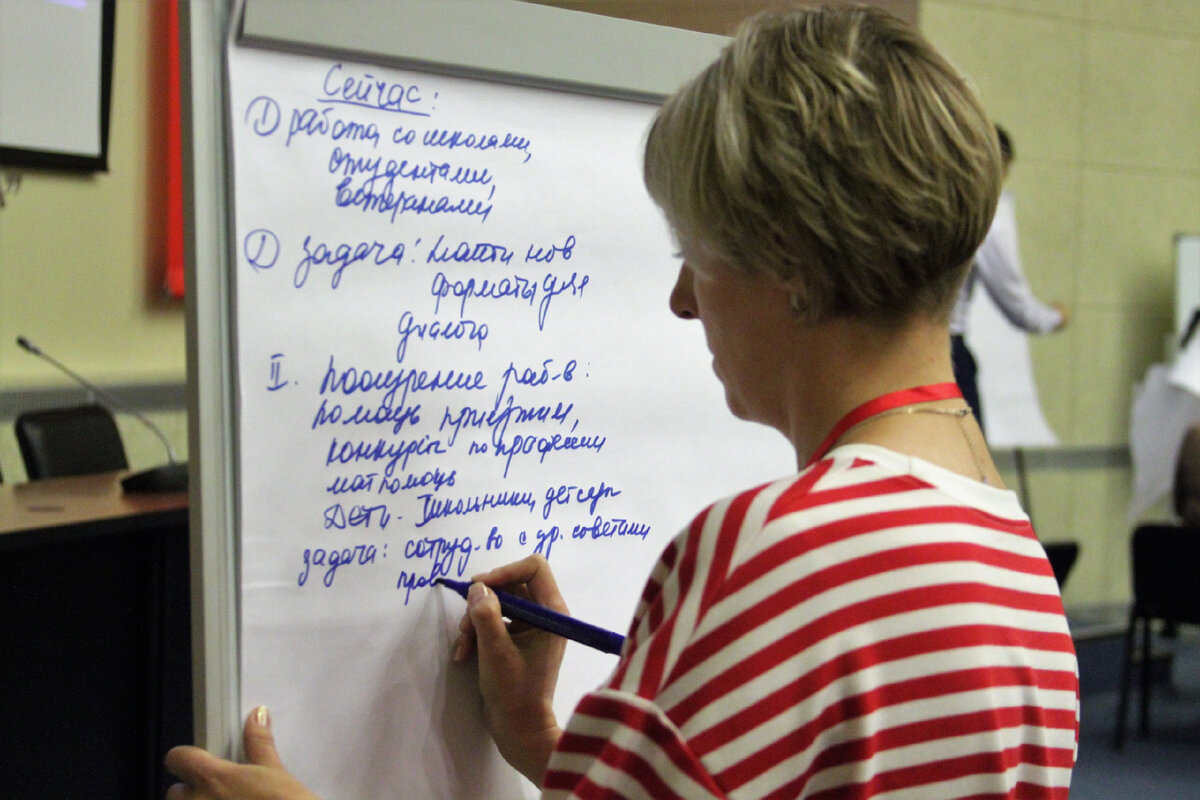 Сейчас:
① работа со школами,
студентами,
ветеранами
① задача: найти нов
форматы для
диалога
II. Поощрение раб-в:
помощь приезжим,
конкурсы по профессии
мат помощь
Дети - Школьники, дет сады
задача: сотруд-во с др. советами
пров